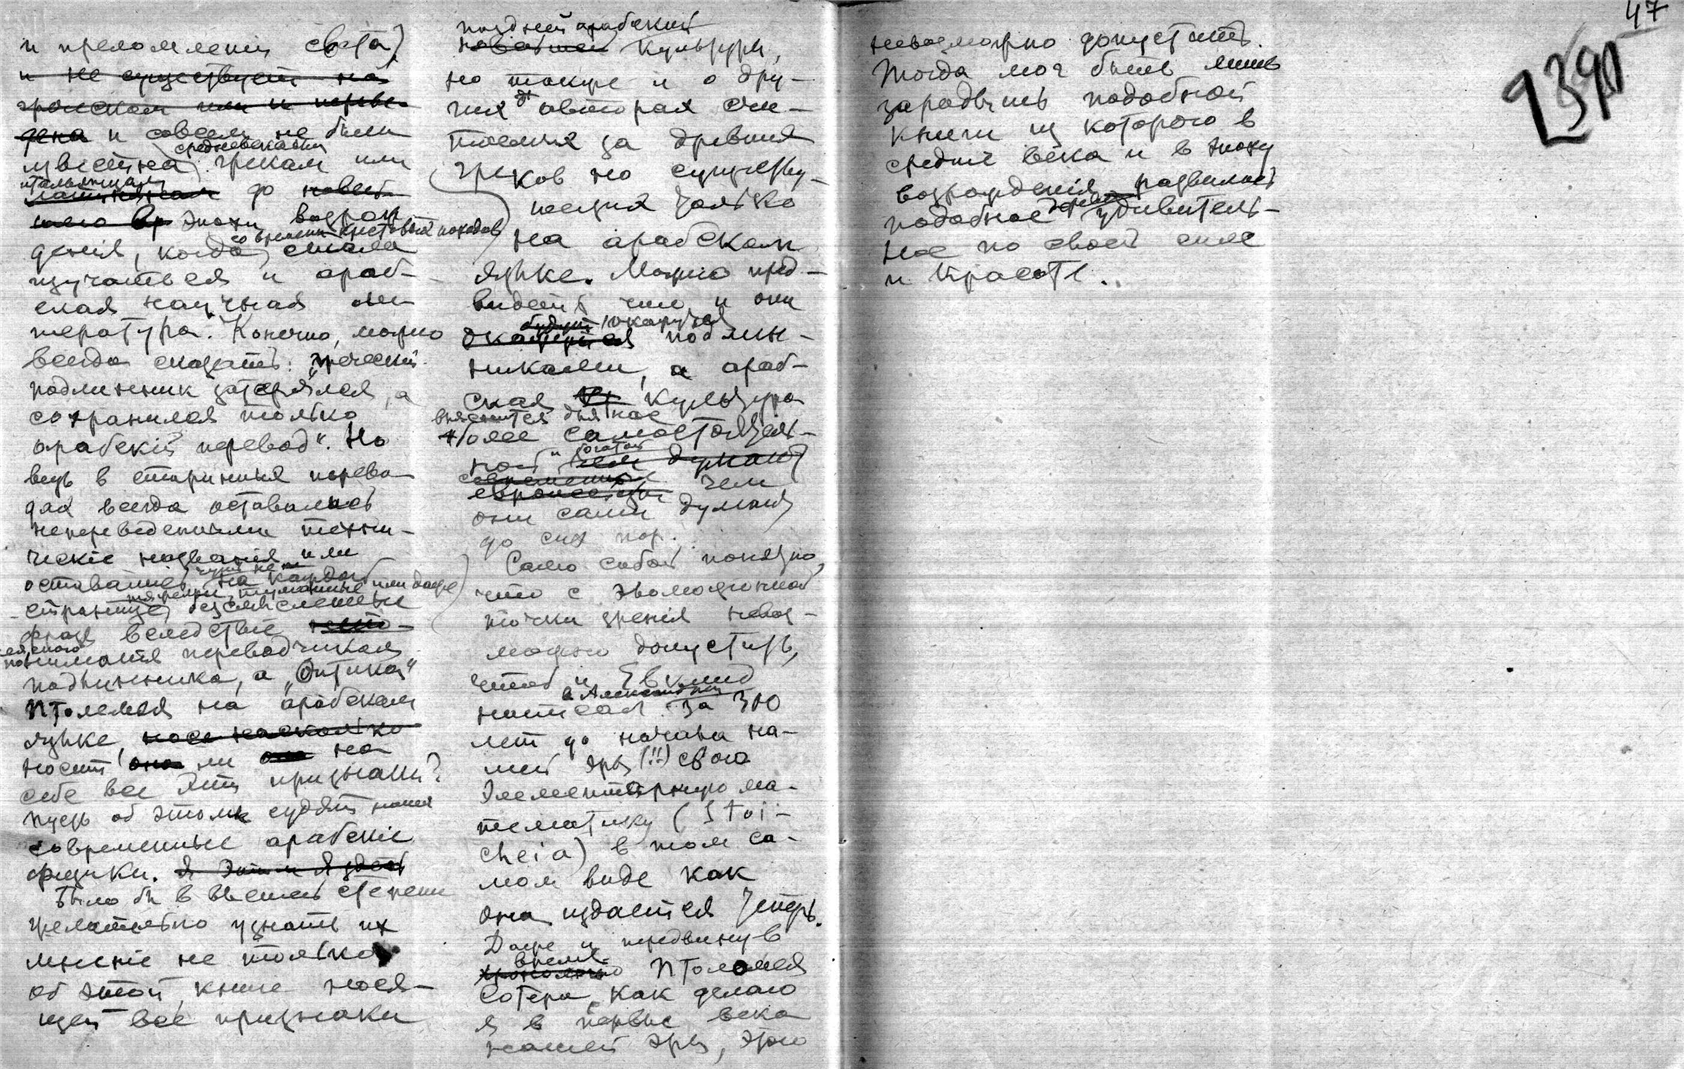 и преломленiи света)
и не существует на
греческом или и переве-
дена и совсем не были
средневековым
известна грекам или
итальянцам
до новей-
шего вр эпохи возрож
со времени крестовых походов
денiя, когда стала
изучаться и араб-
ская научная ли-
тература. Конечно, можно
всегда сказать: „греческiй
подлинник затерялся, а
сохранился только
арабскiй перевод“. Но
ведь в старинных перево-
дах всегда оставались
непереведенными техни-
ческiе названiя или
оставались чуть не на каждой
странице безсмысленные
фразы вследствие
неясного
пониманiя переводчиком
подлинника, а „Оптика“
Птолемея на арабском
языке, носе насколько
носит она ли она на
себе все эти признаки?
Пусть об этом судят наши
современные арабскiе
физики.
Было бы в высшей степени
желательно узнать их
мненiе не только
об этой книге нося-
щей все признаки
поздней арабской
новейшей культуры,
но также и о дру-
гих авторах счи-
таемых за древних
греков но существу-
ющих только
на арабском
языке. Можно пред-
видеть что и они
будут / окажутся
окажутся подлин-
никами, а араб-
ская культура
выяснится для нас
более самостоятель-
ной и богатой
чем думают
современные
европейцы чем
они сами думают
до сих пор.
Само собой понятно,
что с эволюционной
точки зренiя невоз-
можно допустить,
чтоб и Евклид
в Александрии
написал за 300
лет до начала на-
шей эры (!!) свою
Элементарную ма-
тематику (Stoi-
cheia) в том са-
мом виде как
она издается теперь.
Даже и передвинув
время
Птоломея
Сотера, как делаю
я в первые века
нашей эры, это
47
невозможно допустить.
Тогда мог быть лишь
зародыш подобной
книги из которого в
среднiе века и в эпоху
возрожденiя развилось
подобное дерево удивитель-
ное по своей силе
и красоте.